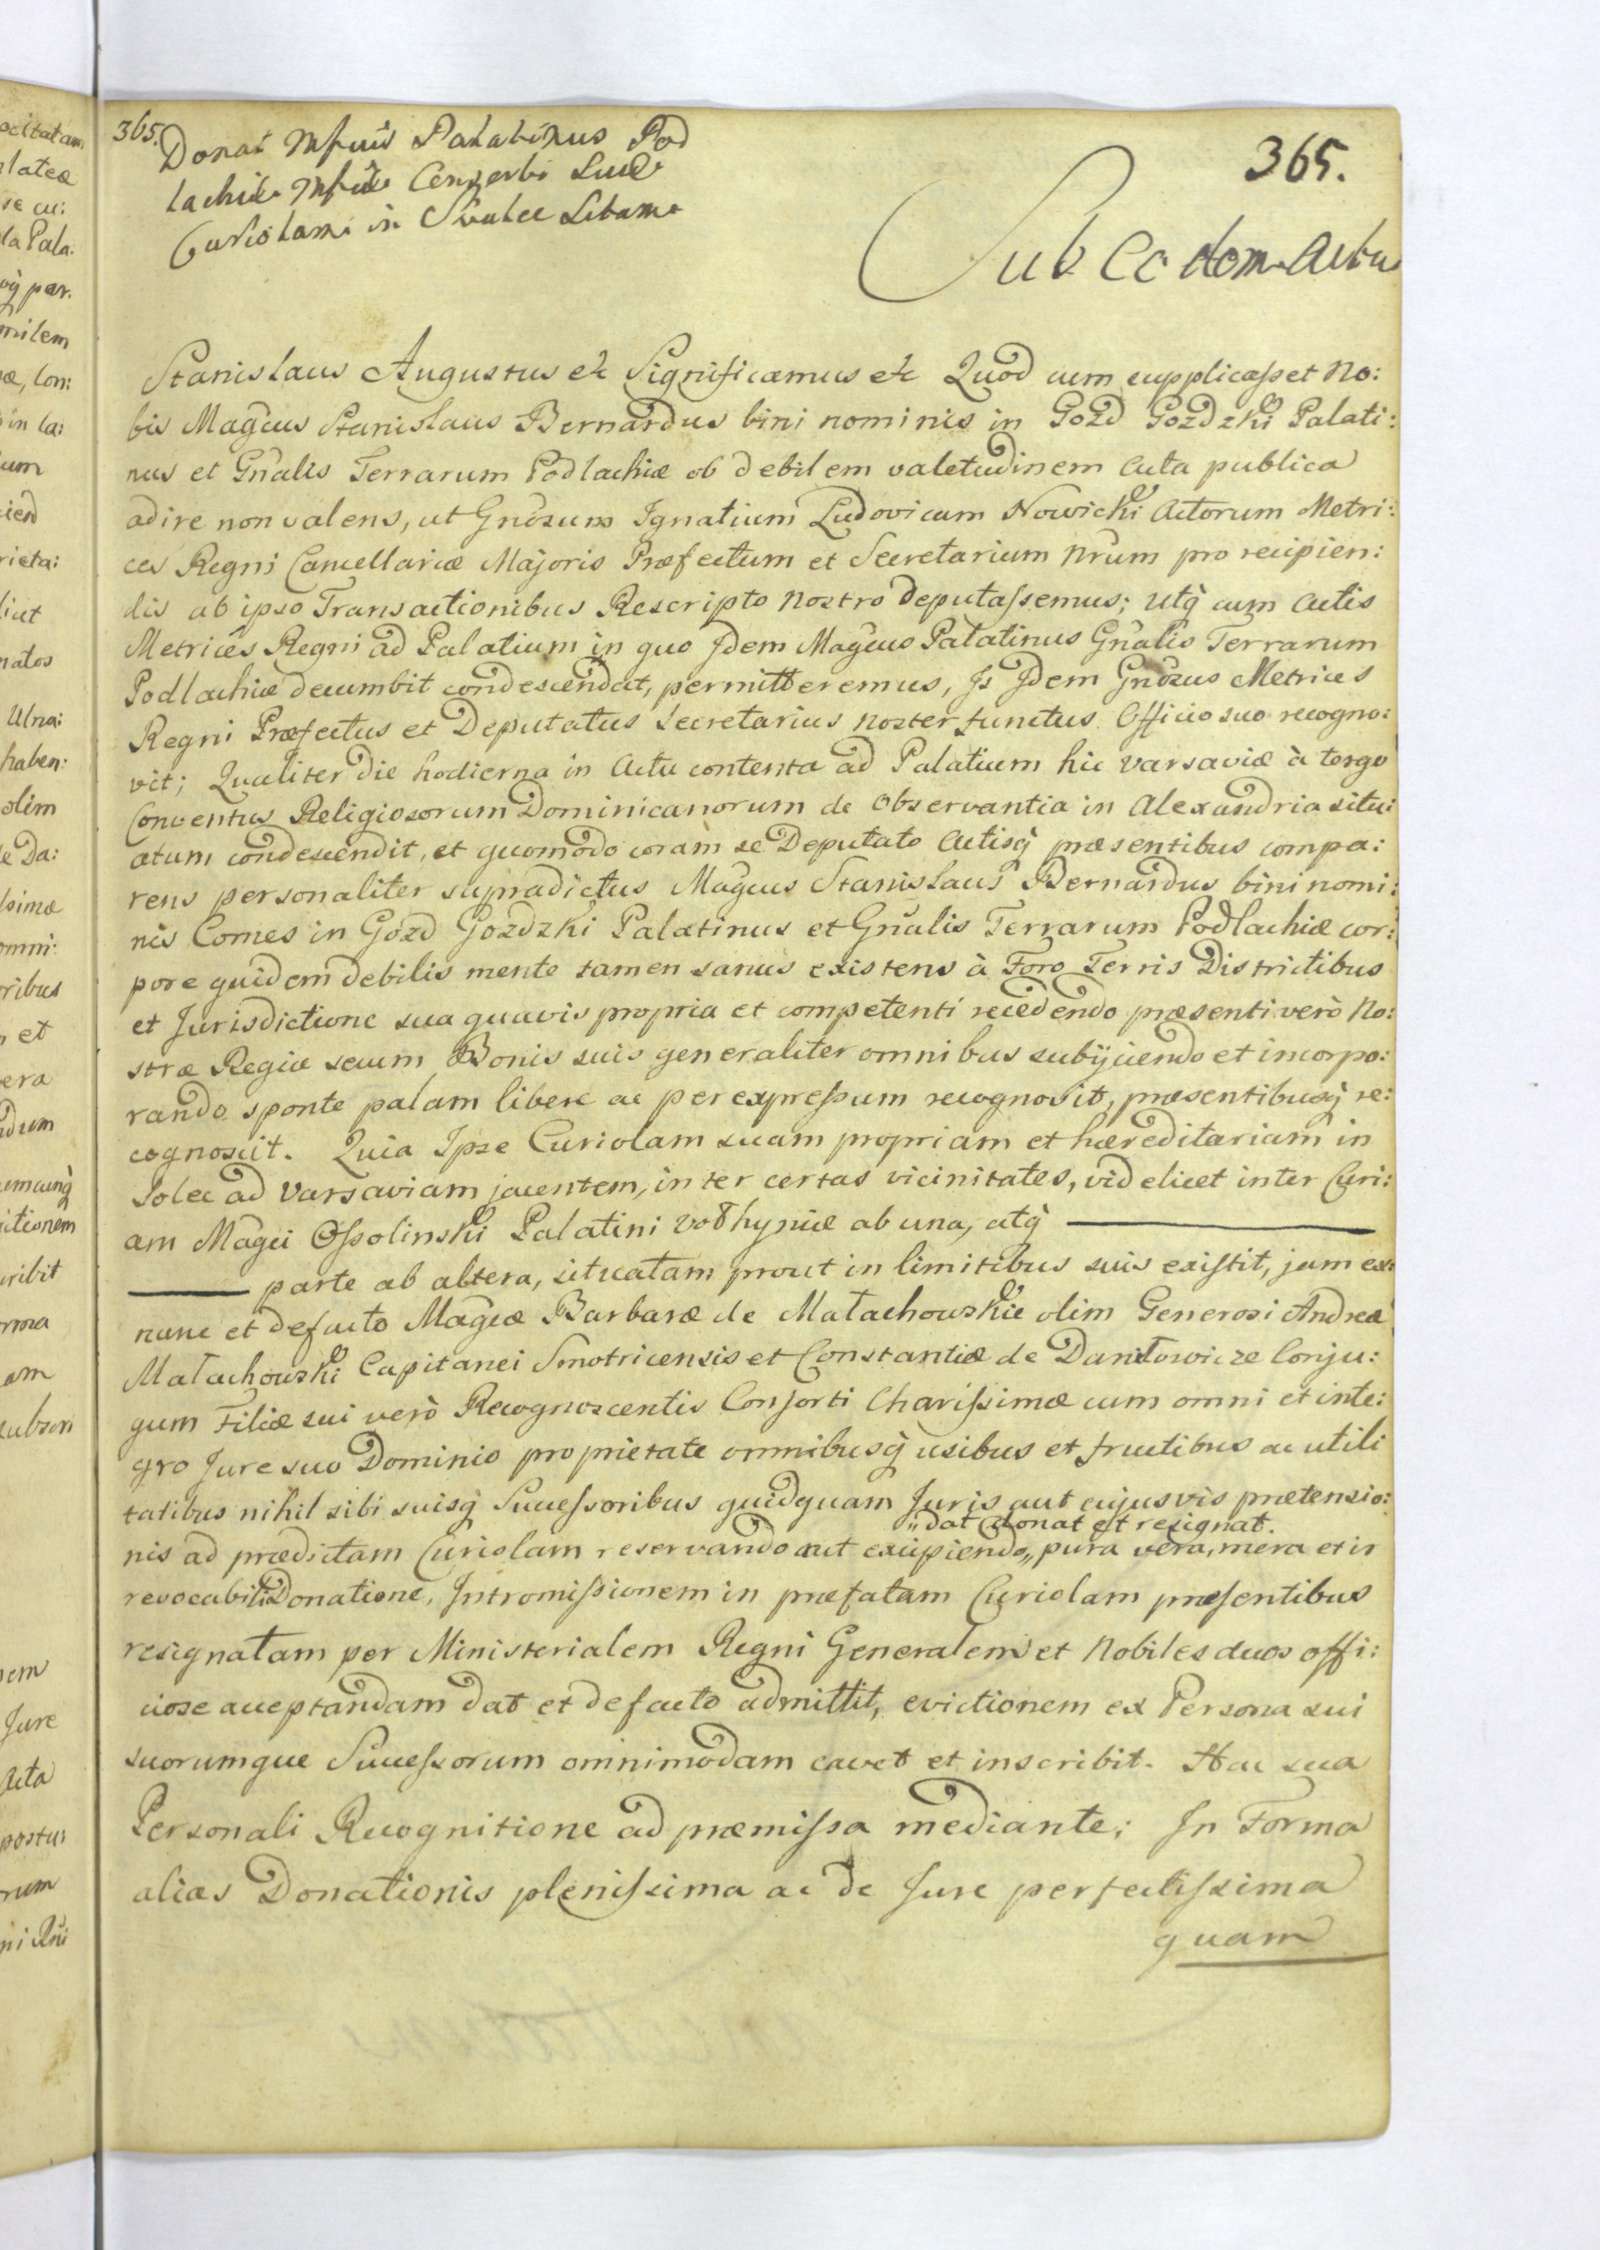 365.
365.
Donat Mfcus Palatinus Pod
lachiæ Mfcæ Consorti Suæ
Curiolam in Solec Sitam
Sub Eodem Actu
Stanislaus Augustus etc Significamus etc Quod cum supplicasset No:
bis Magcus Stanislaus Bernardus bini nominis in Gozd Gozdzki Palati:
nus et Gnalis Terrarum Podlachiæ ob debilem valetudinem Acta publica
adire non valens, ut Gnosum Ignatium Ludovicum Nowicki Actorum Metri:
ces Regni Cancellariæ Majoris Præfectum et Secretarium Nrum pro recipien:
dis ab ipso Transactionibus Rescripto Nostro deputassemus; Utq cum Actis
Metrices Regni ad Palatium in quo Idem Magcus Palatinus Gnalis Terrarum
Podlachiæ decumbit condescendat, permitteremus, Is Idem Gnosus Metrices
Regni Præfectus et Deputatus Secretarius noster functus Officio suo recogno:
vit; Qualiter die hodierna in Actu contenta ad Palatium hic Varsaviæ à tergo
Conventus Religiosorum Dominicanorum de Observantia in Alexandria situ:
atum condescendit, et quomodo coram se Deputato Actisq præsentibus compa:
rens personaliter supradictus Magcus Stanislaus Bernardus bini nomi:
nis Comes in Gozd Gozdzki Palatinus et Gnalis Terrarum Podlachiæ cor:
pore quidem debilis mente tamen sanus existens à Foro Terris Districtibus
et Jurisdictione sua quavis propria et competenti recedendo præsenti verò No:
stræ Regiæ secum Bonis suis generaliter omnibus subijciendo et incorpo:
rando sponte palam libere ac per expressum recognovit, præsentibusq re:
cognoscit. Quia Ipse Curiolam suam propriam et hæreditariam in
Solec ad Varsaviam jacentem, inter certas vicinitates, videlicet inter Curi:
am Magci Ossolinski Palatini Volhyniæ ab una, atq
parte ab altera, situatam prout in limitibus suis existit, jam ex
nunc et defacto Magcæ Barbaræ de Małachowskie olim Generosi Andreæ
Małachowski Capitanei Smotricensis et Constantiæ de Daniłowicze Conju:
gum Filiæ sui verò Recognoscentis Consorti Charissimæ cum omni et inte:
gro Jure suo Dominio proprietate omnibusq usibus et fructibus ac utili
tatibus nihil sibi suisq Successoribus quidquam Juris aut cujusvis prætensio:
„dat donat et resignat.
nis ad prædictam Curiolam reservando aut excipiendo„ pura vera, mera et ir
revocabili Donatione, Intromissionem in præfatam Curiolam præsentibus
resignatam per Ministerialem Regni Generalem et Nobiles duos offi:
ciose acceptandam dat et defacto admittit, evictionem ex Persona sui
suorumque Successorum omnimodam cavet et inscribit. Hac sua
Personali Recognitione ad præmissa mediante; In Forma
alias Donationis plenissima ac de Jure perfectissima
quam